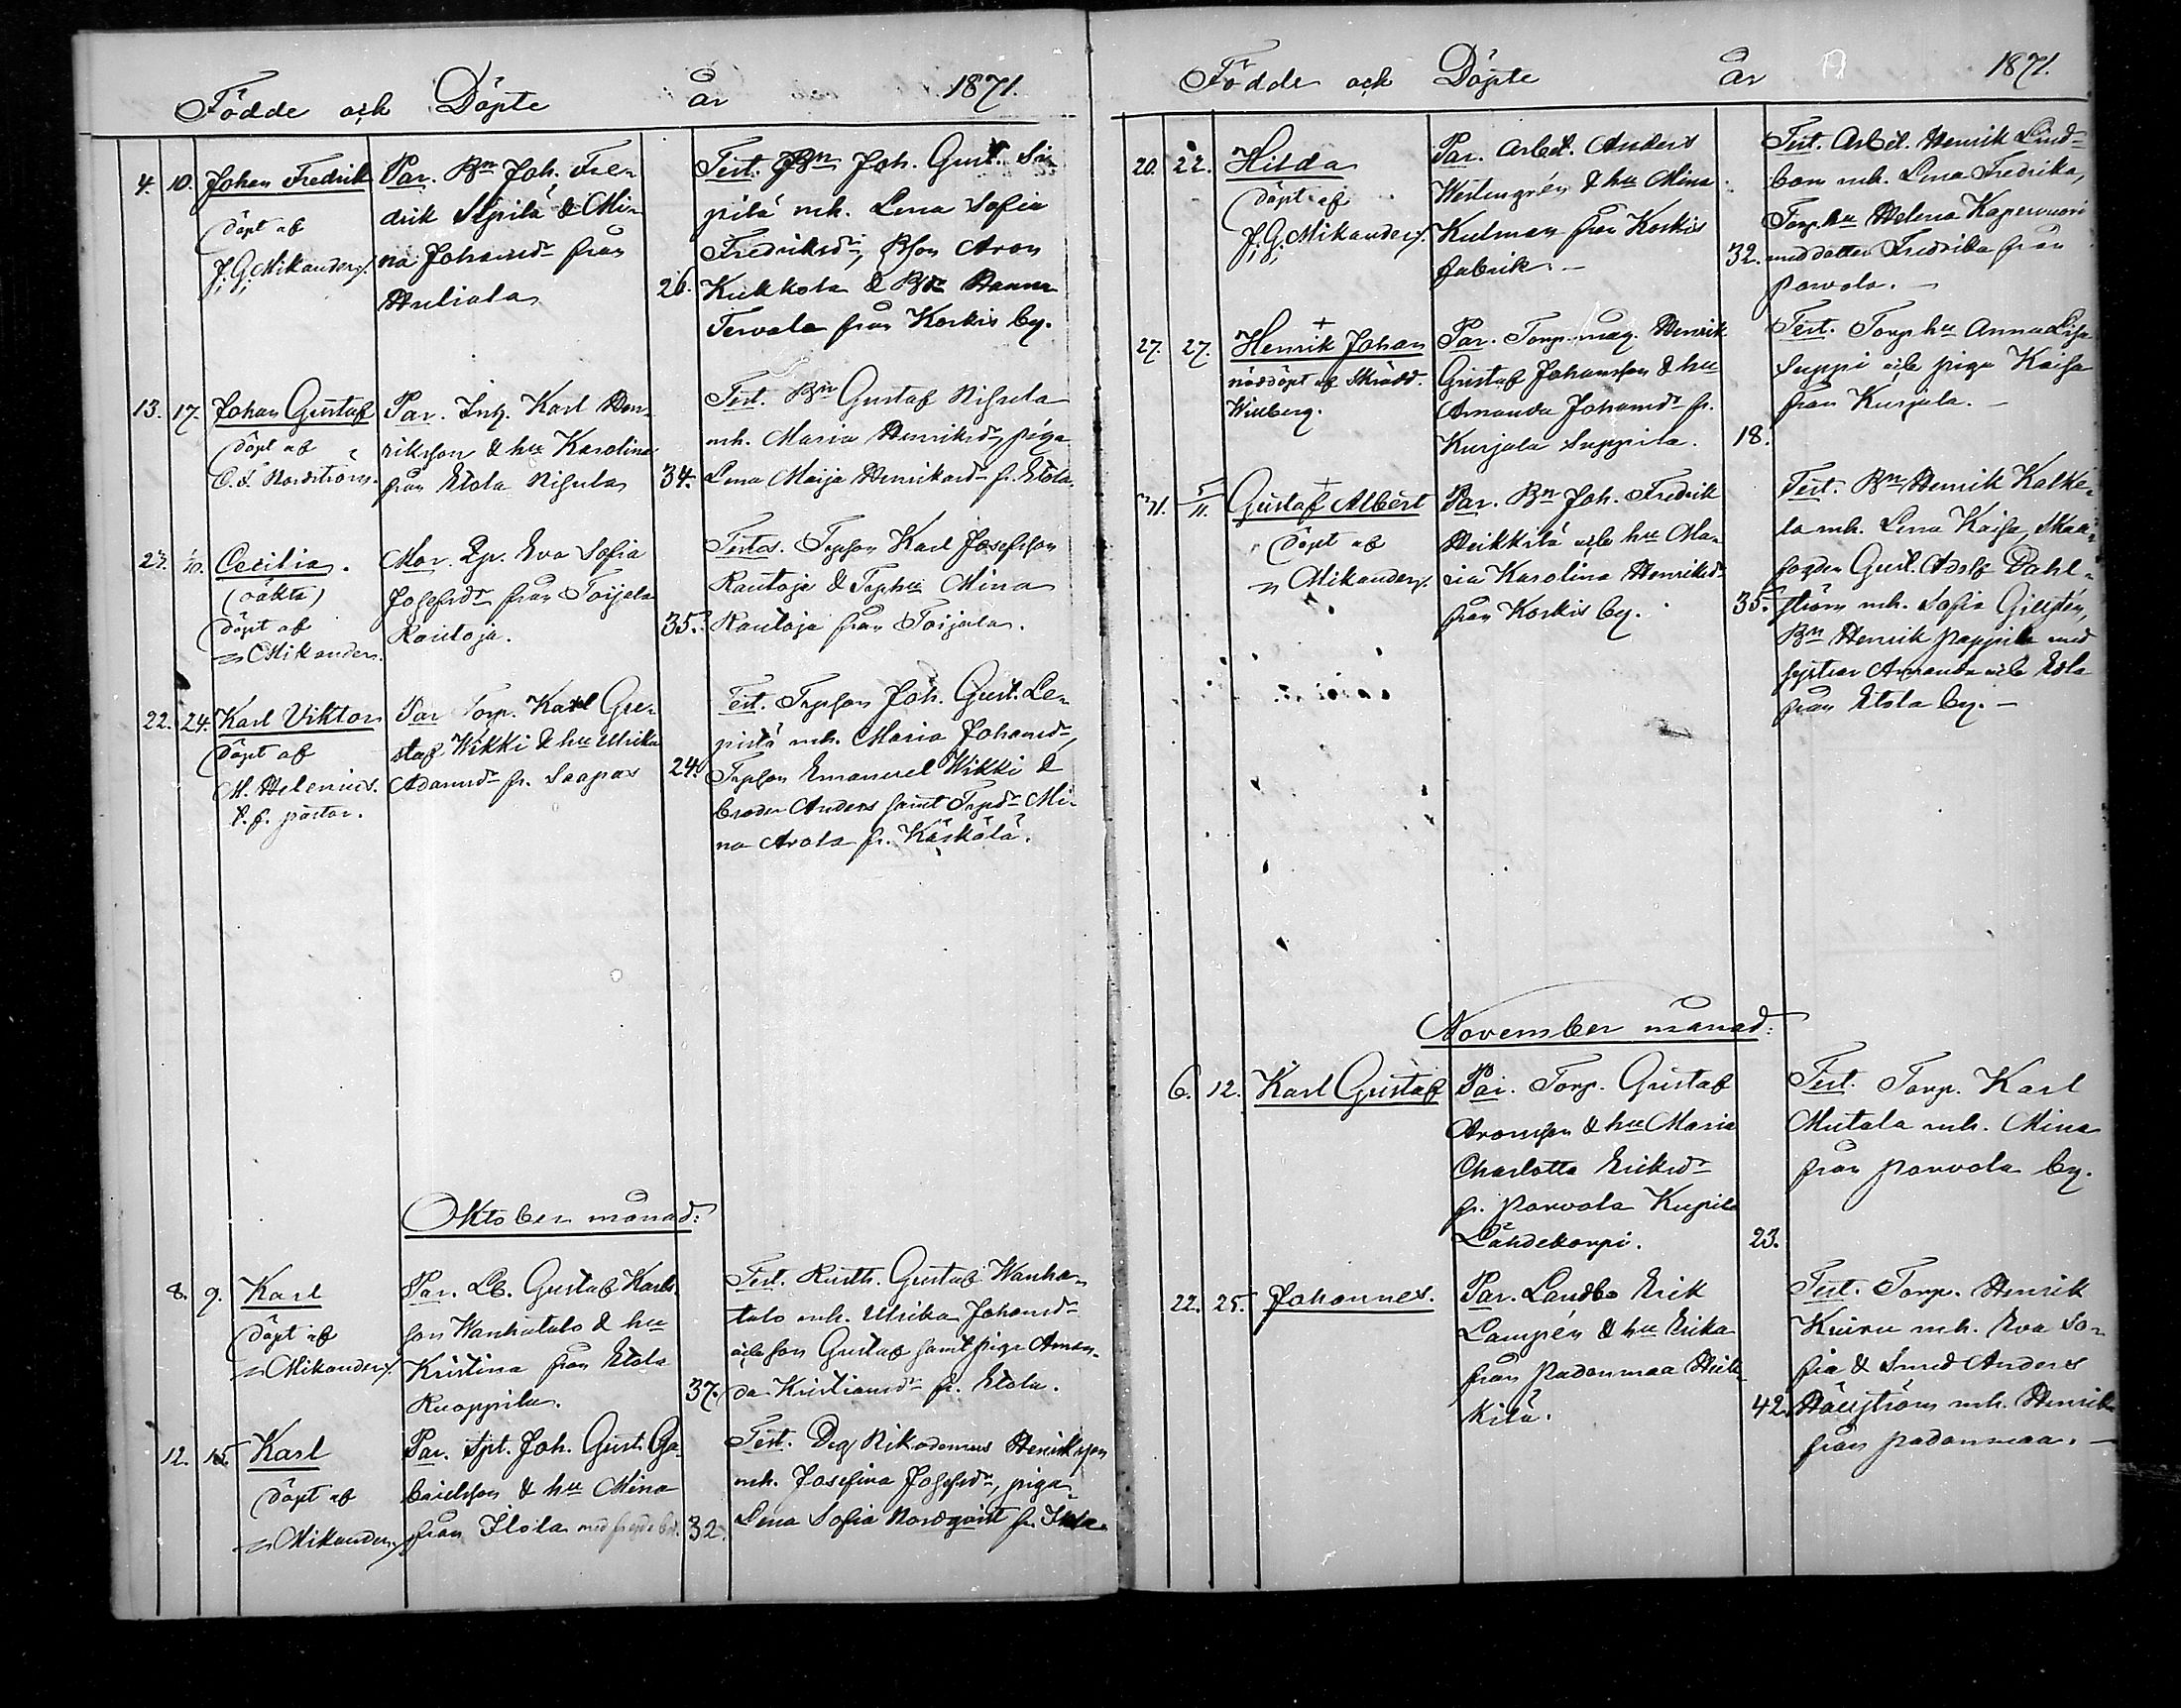 Födde och Döpte år 1871.
4. 10. Johan Fredrik
döpt af
J. G. Mikander.
Par. Bn Joh. Fre-
drik Sipilä & Mi-
na Johansdr från
Huliala
26.
Test. Bn Joh. Gust. Si-
pilä mh. Lena Sofia
Fredriksdr, Bson Aron
Kukkola & Bdr Hanna
Tervala från Koskis by.
13. 17. Johan Gustaf
döpt af
Nordström.
Par. Inh. Karl Hen-
riksson & hu Karolina
från Etola Nisula
34.
Test. Bn Gustaf Nisula
mh. Maria Henriksdr, piga
Lena Maija Henriksdr fr. Etola.
27. 1/10. Cecilia.
(oäkta)
döpt af
Mikander.
Mor. Eva Sofia
Josefsdr från Toijala
Rautoja.
35.
Testes. Trpson Karl Josefsson
Rautoja & Trphu Mina
Rautoja från Toijala.
22. 24. Karl Viktor
döpt af
M. Helenius.
t. f. pastor.
Par Torp. Karl Gu-
staf Wikki & hu Ulrika
Adamsdr fr. Saapas
24.
Test. Trpson Joh. Gust. Le-
pistä mh. Maria Johansdr,
Trpson Emanuel Wikki &
broder Anders samt Trpdr Mi-
na Arola fr. Käskälä.
Oktober månad:
8. 9. Karl
döpt af
Mikander.
Par. Lb. Gustaf Karls-
son Wanhatalo & hu
Kristina från Etola
Ruoppila.
37.
Test. Rusth. Gustaf Wanha-
talo mh. Ulrika Johansdr
och son Gustaf samt piga Aman-
da Kristiansdr fr. Etola.
12. 15. Karl
döpt af
Mikander
Par. Spt. Joh. Gust. Ga-
brielsson & hu Mina
från Ilola
32.
Test. Drg Nikodemus Henriksson
mh. Josefina Josefsdr, piga
Lena Sofia Nordqvist fr. Ilola
Födde och Döpte år 1871.
20. 22. Hilda
döpt af
J. G. Mikander.
Par. Arbet. Anders
Westergrén & hu Mina
Kulman från Koskis
fabrik. –
32.
Test. Arbet. Henrik Lind-
bom mh. Lena Fredrika,
Torp.hu Helena Kapenvuori
med dotter Fredrika från
Porvola. –
27. 27. + Henrik Johan
nöddöpt af Skrädd.
Winberg.
Par. Torp.mag. Henrik
Gustaf Johansson & hu
Amanda Johansdr fr.
Kurjala Suppila.
18.
Test. Torp hu Anna Lisa
Suppi och piga Kaisa
från Kurjala. –
31. 5/11. + Gustaf Albert
döpt af
Mikander.
Par. Bn Joh. Fredrik
Heikkilä och hu Ma-
ria Karolina Henriksdr
från Koskis by.
35.
Test. Bn Henrik Kalke-
la mh. Lena Kaisa,
Gust. Adolf Dahl-
ström mh. Sofia Gillstén,
Bn Henrik Pappila med
syster Amanda och Eola
från Etola by. –
November månad:
6. 12. Karl Gustaf
Par. Torp. Gustaf
Aronsson & hu Maria
Charlotta Eriksdr
fr. Porvola Kupila
Lähdekorpi.
23.
Test. Torp. Karl
Mutala mh. Mina
från Porvola by.
22. 25. Johannes.
Par. Landbo Erik
Lampén & hu Erika
från Padanmaa Heik-
kilä.
42.
Test. Torp. Henrik
Kuiru mh. Eva So-
fia & Smed Anders
Hägström mh. Henrika
från Padanmaa. –